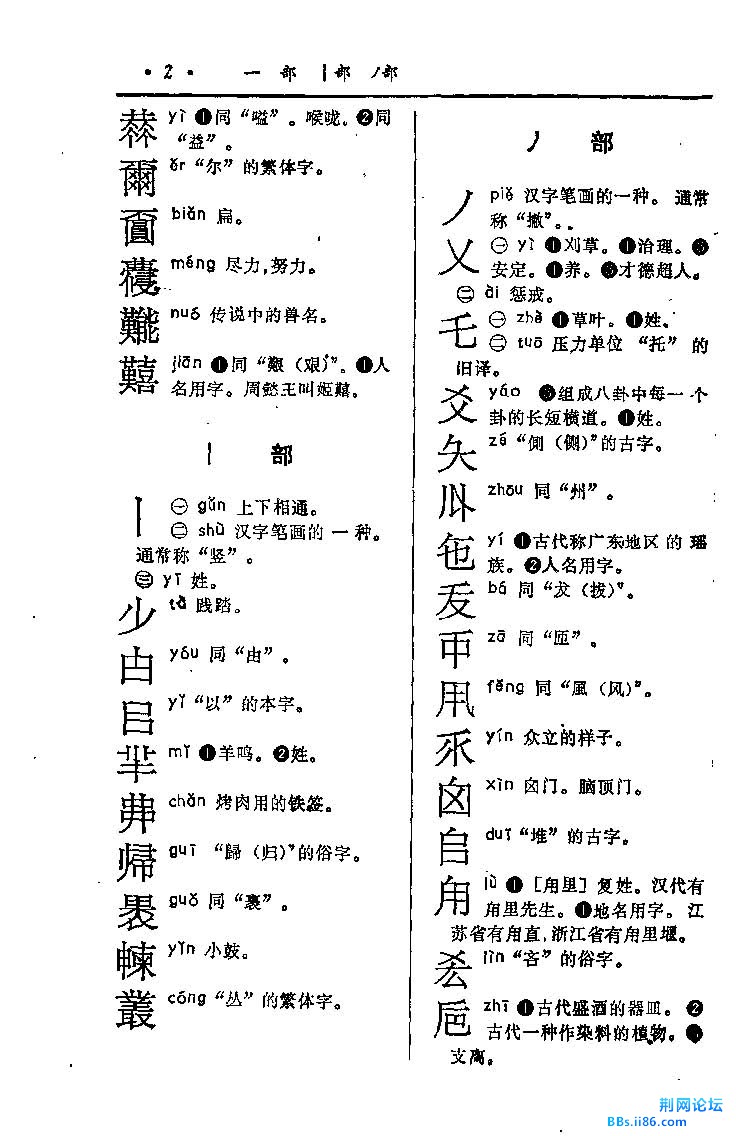 ·2· 一部 丨部 丿部
yì ❶同“嗌”。喉咙。❷同
“益”。
爾 ěr “尔”的繁体字。
biǎn 扁。
méng 尽力,努力。
nuó 传说中的兽名。
囏 jiān ❶同“艱（艰）”。❶人
名用字。周懿王叫姬囏。
丨 部
丨 ㊀ gǔn 上下相通。
㊁ shù 汉字笔画的一种。
通常称“竖”。
㊂ yī 姓。
tà 践踏。
甴 yóu 同“由”。
㠯 yǐ “以”的本字。
芈 mǐ ❶羊鸣。❷姓。
丳 chǎn 烤肉用的铁签。
帰 guī “歸（归）”的俗字。
guǒ 同“裹”。
朄 yǐn 小鼓。
叢 cóng “丛”的繁体字。
丿 部
丿 piě 汉字笔画的一种。通常
称“撇”。
乂 ㊀ yì ❶刈草。❶治理。❸
安定。❶养。❸才德超人。
㊁ ài 惩戒。
乇 ㊀ zhé ❶草叶。❶姓。
㊁ tuō 压力单位“托”的
旧译。
爻 yáo ❸组成八卦中每一个
卦的长短横道。❶姓。
夨 zé “側（侧）”的古字。
zhōu 同“州”。
yí ❶古代称广东地区的瑶
族。❷人名用字。
犮 bá 同“犮（拔）”。
帀 zā 同“匝”。
凨 fēng 同“風（风）”。
乑 yín 众立的样子。
囟 xìn 囟门。脑顶门。
𠂤 duī “堆”的古字。
甪 lù ❶［甪里］复姓。汉代有
甪里先生。❶地名用字。江
苏省有甪直,浙江省有甪里堰。
lìn “吝”的俗字。
巵 zhī ❶古代盛酒的器皿。❷
古代一种作染料的植物。❸
支离。
荆网论坛
BBs.ii86.com